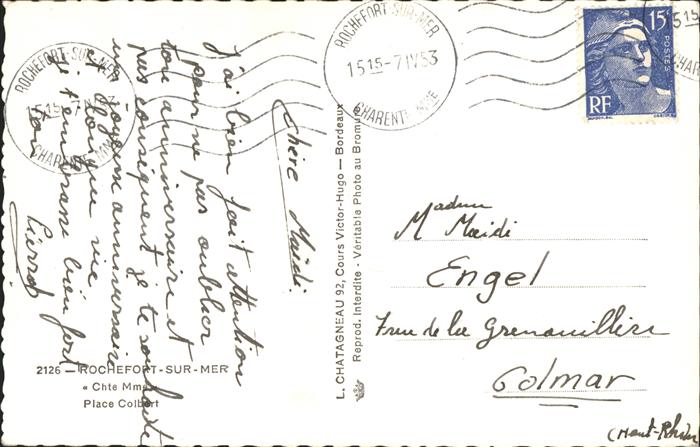 Chère Maïdi
j'ai bien fait attention
pour ne pas oublier
ton anniversaire et
par conséquent je te souhaite
un joyeux anniversaire
longue vie
et t'embrasse bien fort
Pierrot
2126 - ROCHEFORT-SUR-MER
« Chte Mme »
Place Colbert
L. CHATAGNEAU 92, Cours Victor-Hugo — Bordeaux
Reprod. Interdite - Véritable Photo au Bromure
ROCHEFORT-SUR-MER
15 15 - 7 IV 53
CHARENTE MME
ROCHEFORT-SUR-MER
15 15 - 7 IV 53
CHARENTE MME
15F
POSTES
RF
15 15
CHARENTE
Madame
M Maïdi
Engel
7 rue de la Grenouillère
Colmar
(Haut-Rhin)